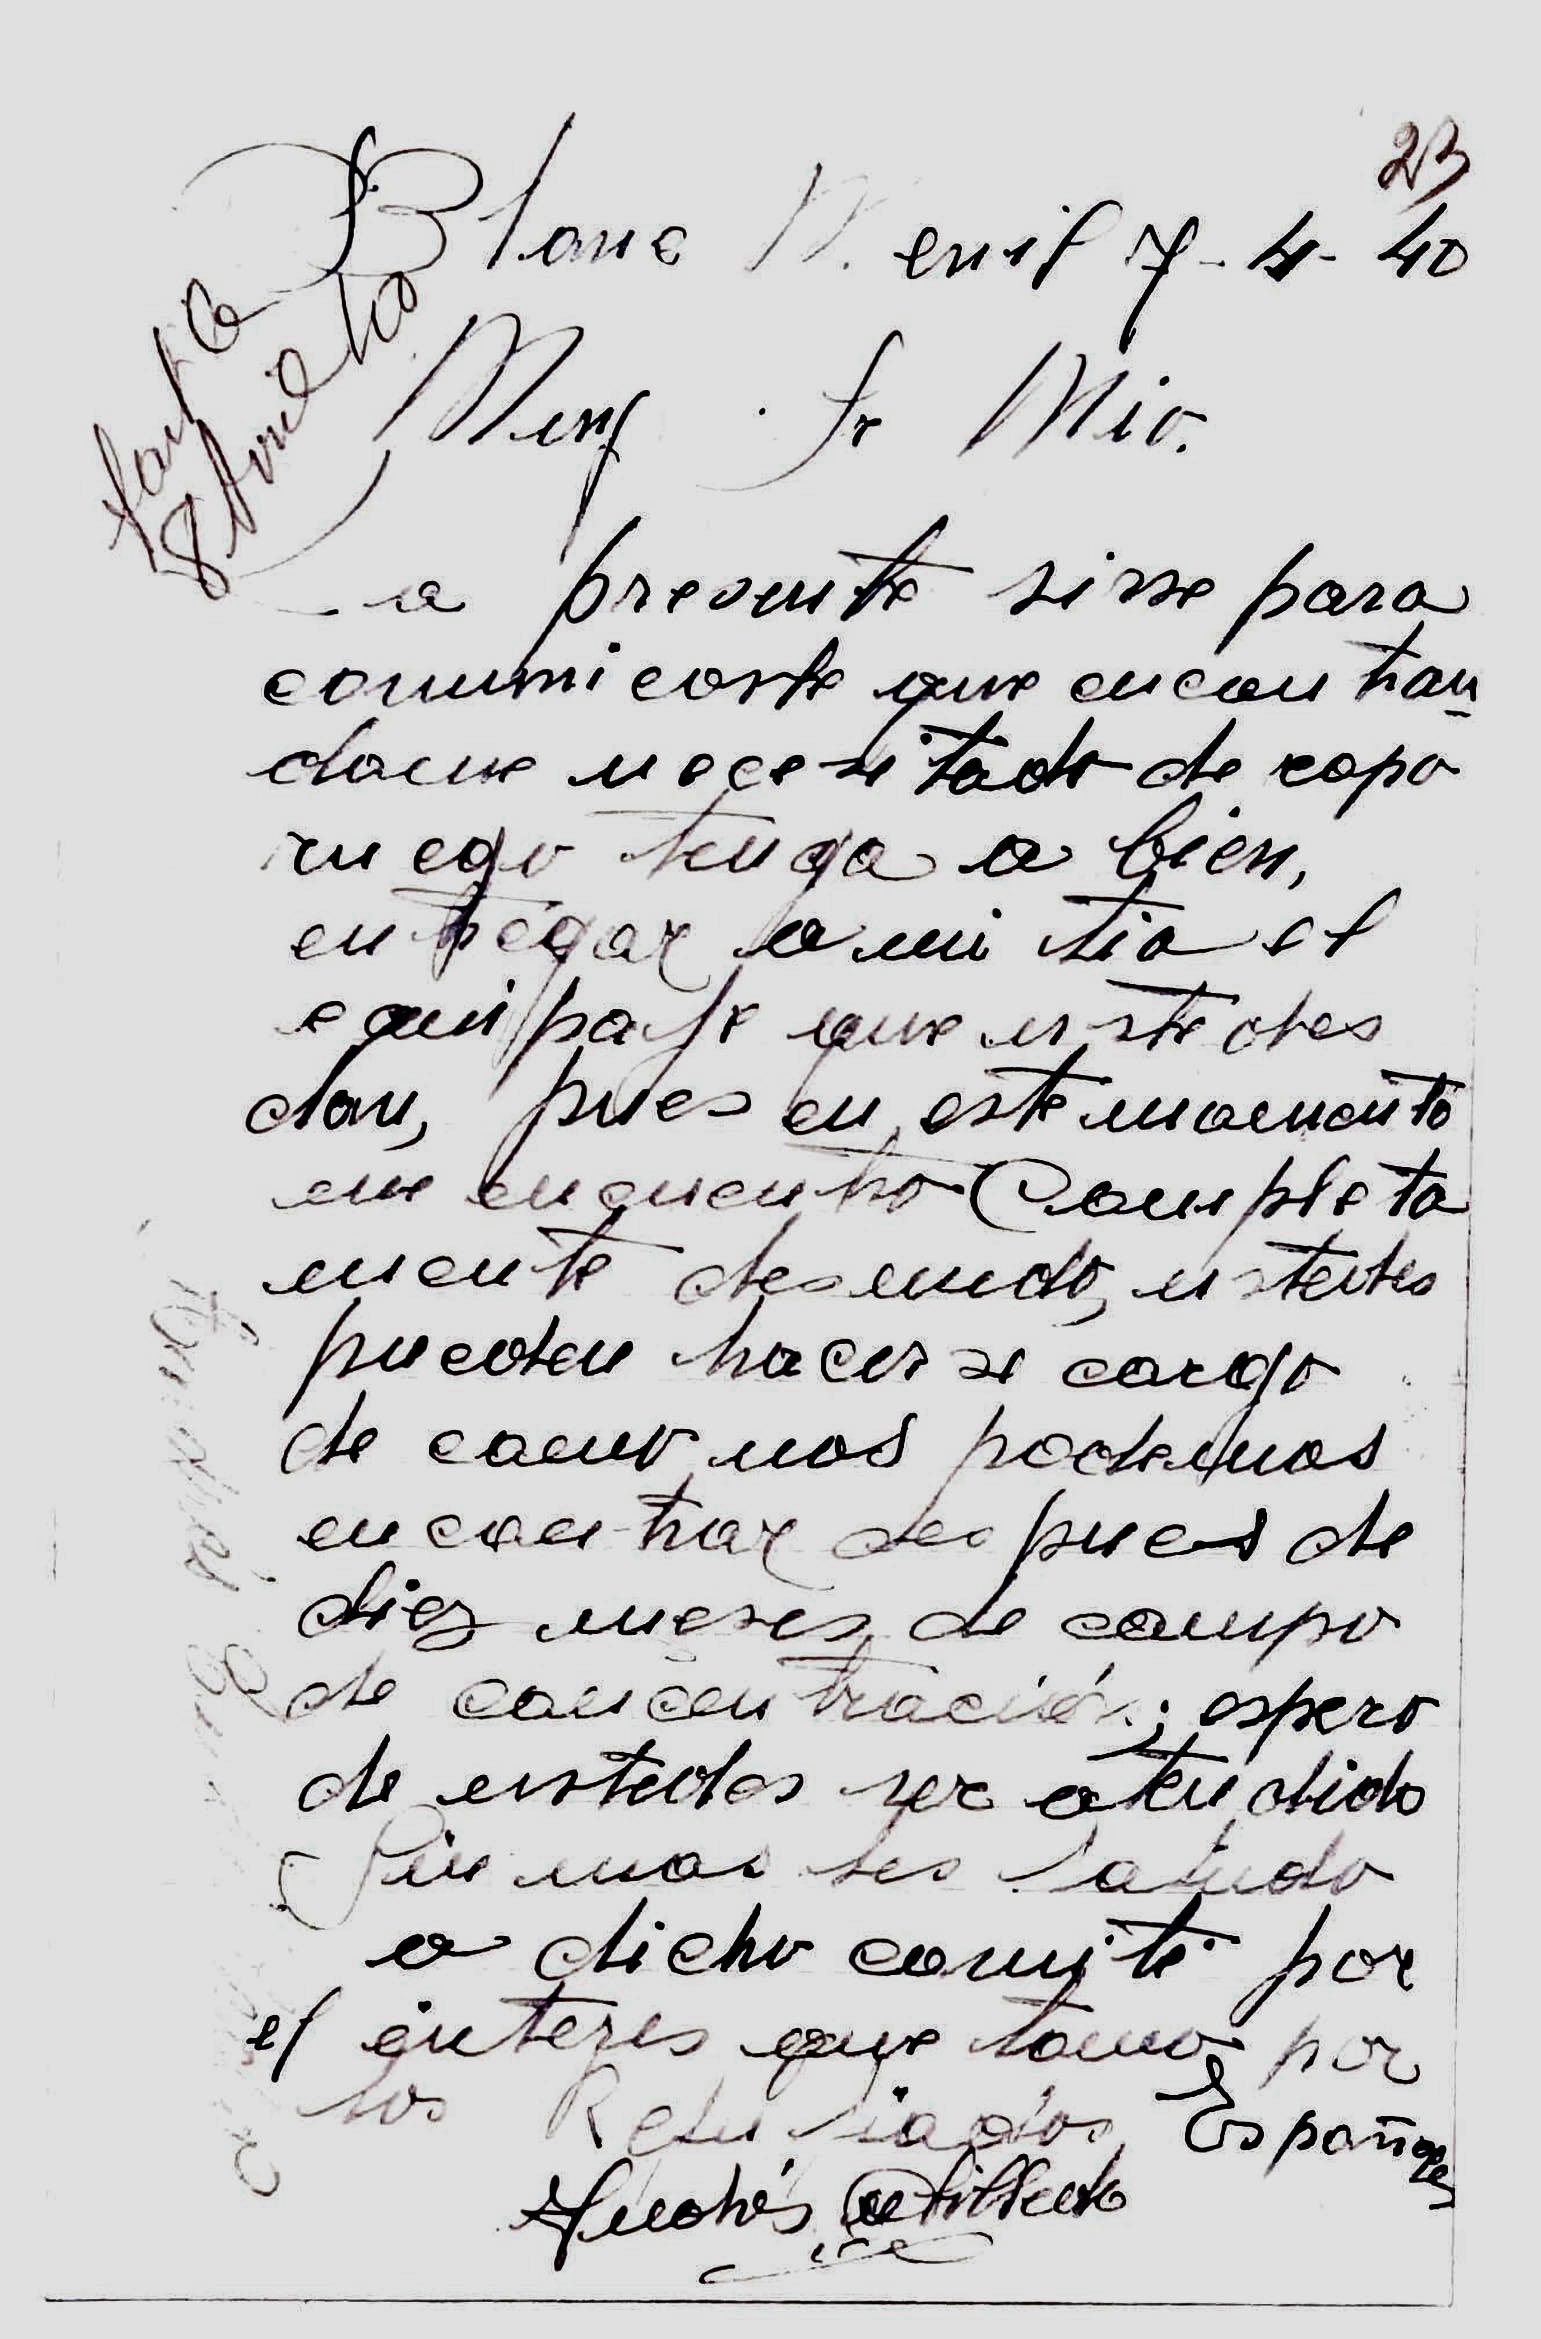 23
Blanc Menil 7-4-40
fait le
8 Avril 40
Muy Sr Mio.
La presente sirve para
comunicarle que encontran
dome necesitado de ropa
ruego tenga a bien,
entregar a mi tia el
equipaje que ustedes
dan, pues en este momento
me encuentro Completa
mente desnudo, ustedes
pueden hacerse cargo
de como nos podemos
encontrar despues de
diez meses de campo
de concentración; espero
de ustedes ser atendido
Sin mas les Saludo
a dicho comité por
el interes que toma por
los Refujiados Españoles
Andrés